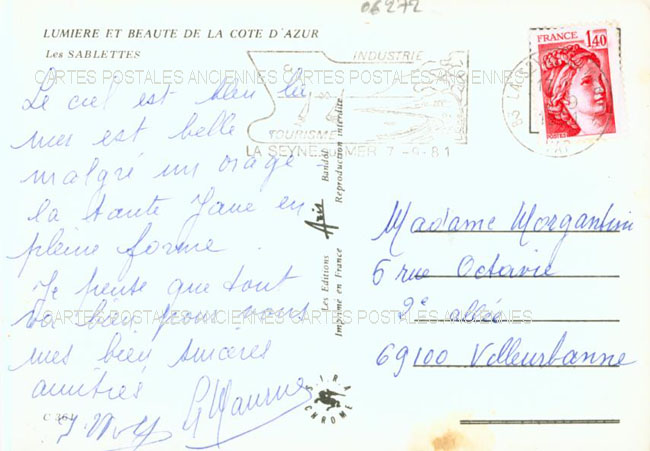 06272
LUMIERE ET BEAUTE DE LA COTE D'AZUR
Les SABLETTES
INDUSTRIE
TOURISME
LA SEYNE SUR MER 7-9-81
FRANCE
1,40
CARTES POSTALES ANCIENNES CARTES POSTALES ANCIENNES
Le ciel est bleu la
mer est belle
malgré un orage
la tante Jane en
pleine forme.
Je pense que tout
va bien pour vous
mes bien sincères
amitiés
C 361
Les Editions Aris Bandol
Imprimé en France Reproduction interdite
SIRA CHROME
Madame Morgantini
6 rue Octavie
2e allée
69100 Villeurbanne
CARTES POSTALES ANCIENNES CARTES POSTALES ANCIENNES